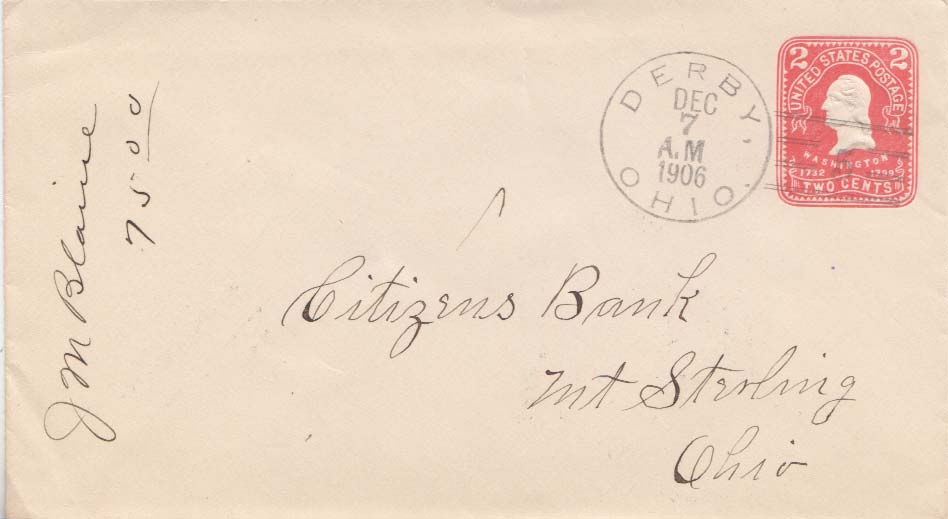 J M Blaine
75 00
DERBY,
OHIO.
DEC
7
A.M
1906
2 2
UNITED STATES POSTAGE
WASHINGTON
1732 1799
TWO CENTS
Citizens Bank
Mt Sterling
Ohio